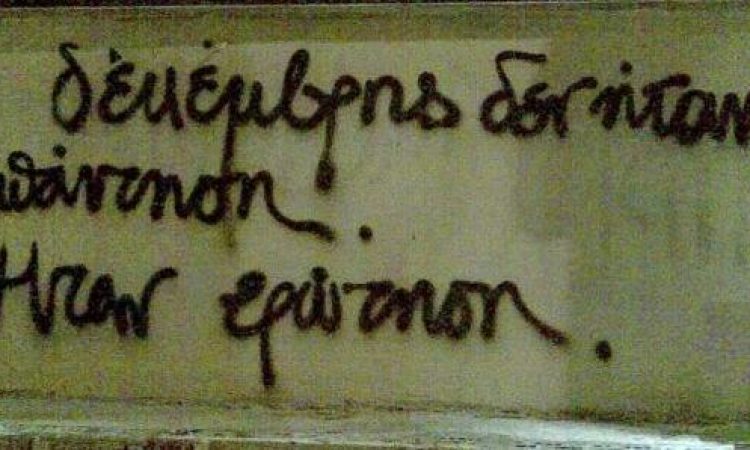 δεκέμβρης δεν ήταν
απάντηση.
Ήταν ερώτηση.